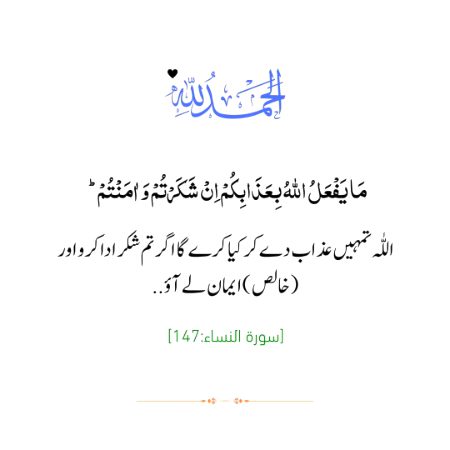 الحمدللہ
مَا يَفْعَلُ اللّٰهُ بِعَذَابِكُمْ اِنْ شَكَرْتُمْ وَ اٰمَنْتُمْ ؕ
اللہ تمہیں عذاب دے کر کیا کرے گا اگر تم شکر ادا کرو اور
(خالص) ایمان لے آؤ..
[سورة النساء:147]